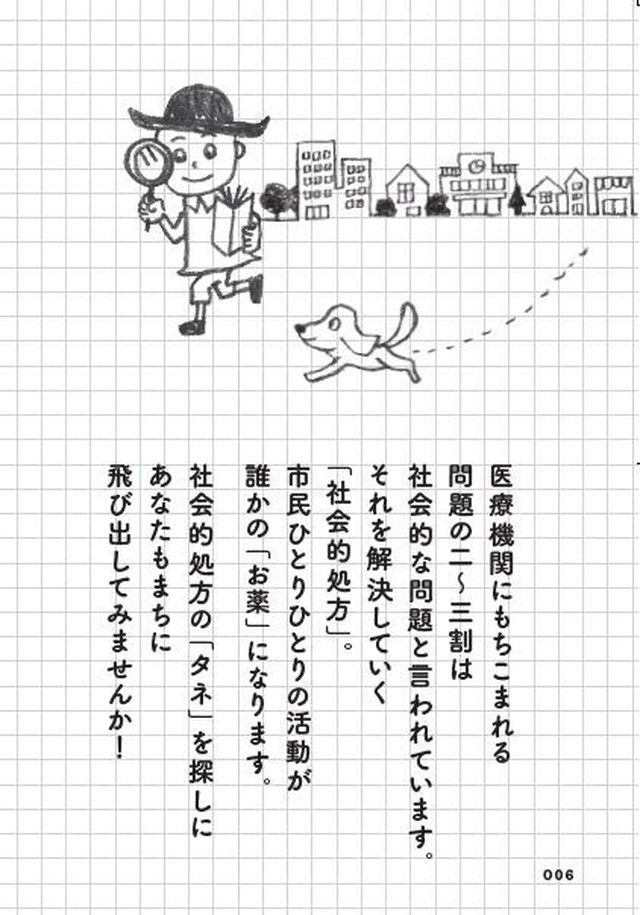 医療機関にもちこまれる
問題の二〜三割は
社会的な問題と言われています。
それを解決していく
「社会的処方」。
市民ひとりひとりの活動が
誰かの「お薬」になります。
社会的処方の「タネ」を探しに
あなたもまちに
飛び出してみませんか!
006